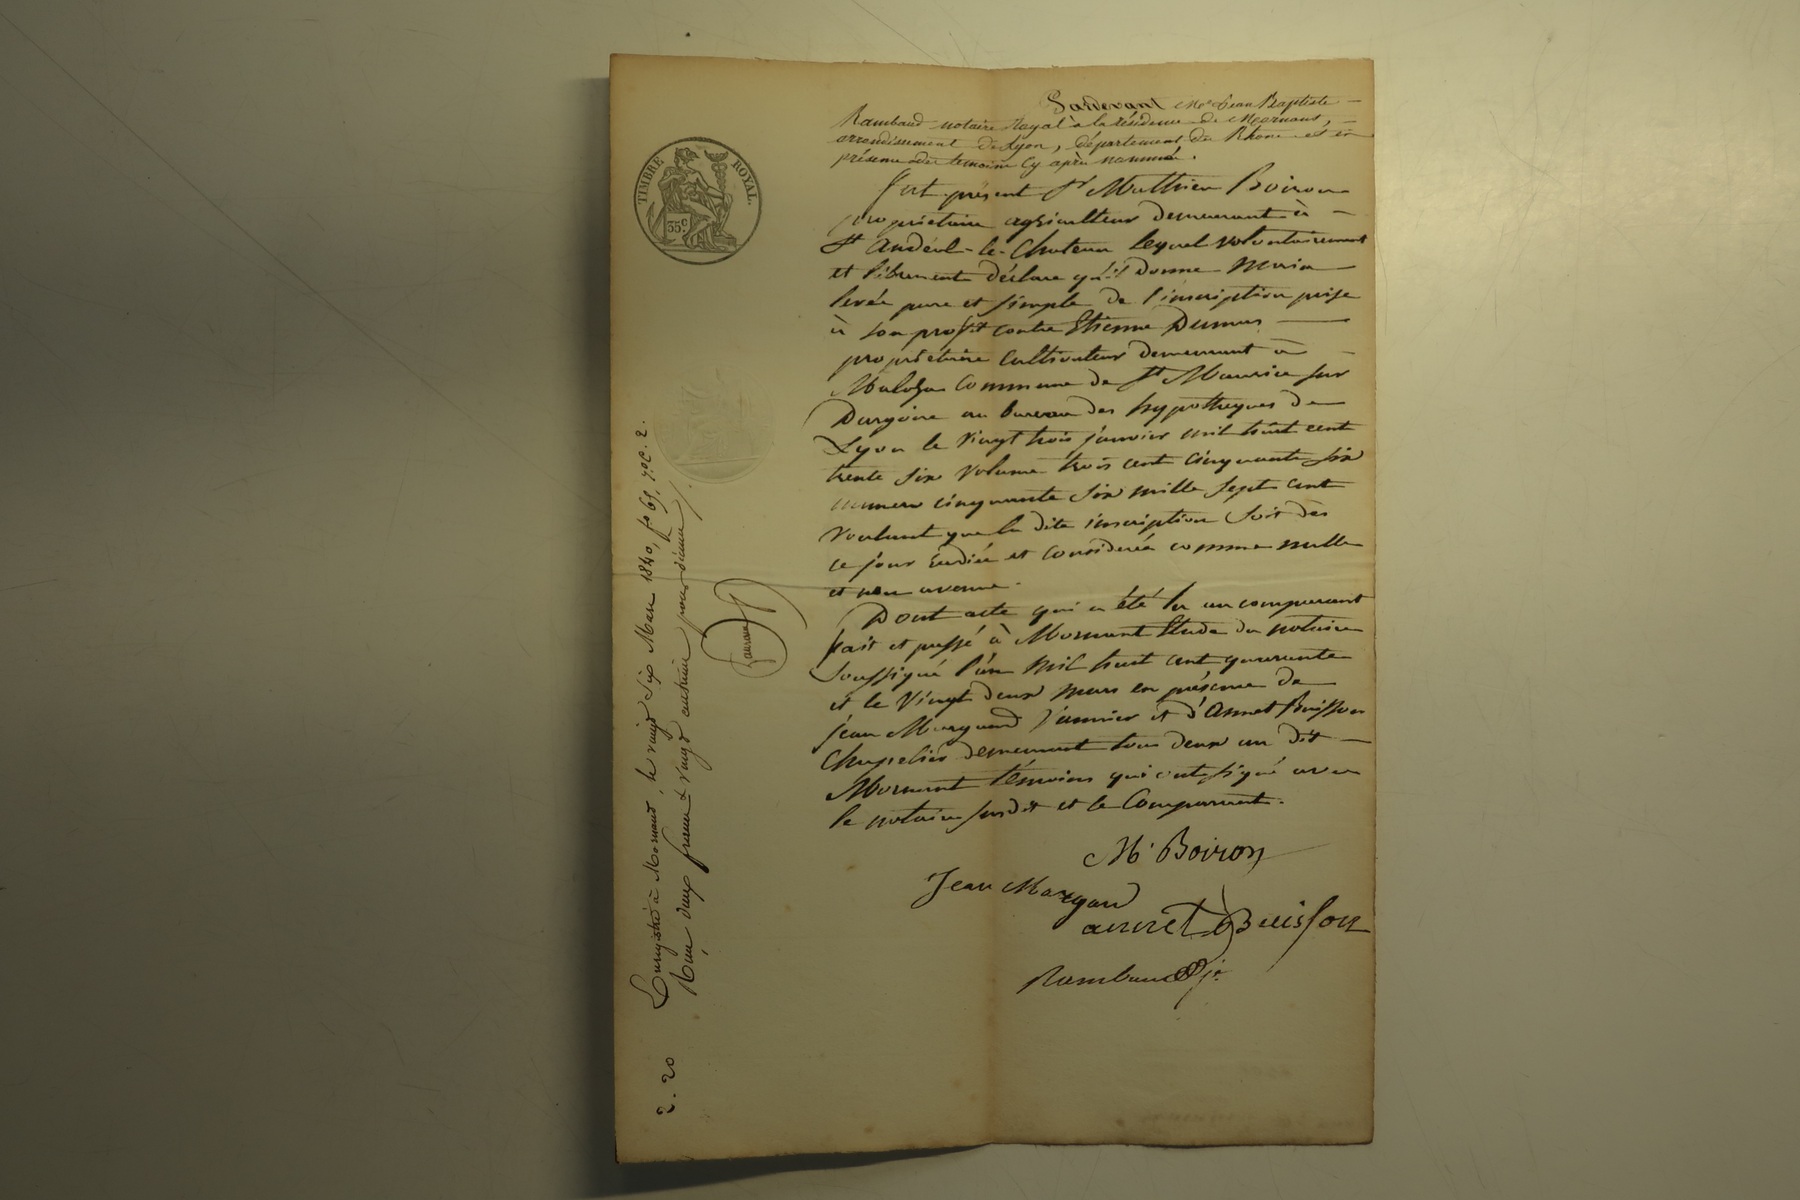 TIMBRE ROYAL.
35c.
Pardevant Me Jean Baptiste
Rambaud notaire Royal à la résidence de Mornant,
arrondissement de Lyon, département du Rhône et en
présence des temoins cy après nommés.
fut présent Sr Matthieu Boiron
propriétaire agriculteur demeurant à
St andéol-le-Chateau lequel volontairement
et librement déclare qu'il donne main
levée pure et simple de l'inscription prise
à son profit contre Etienne Dumas
propriétaire cultivateur demeurant à
commune de St Maurice sur
Dargoire au bureau des hypotheques de
Lyon le vingt trois janvier mil huit cent
trente six volume trois cent cinquante six
numero cinquante six mille sept cent
voulant que la dite inscription soit dès
ce jour radiée et considérée comme nulle
et non avenue.
Dont acte qui a été lu au comparant
fait et passé à Mornant Etude du notaire
soussigné l'an mil huit cent quarante
et le vingt deux mars en présence de
jean Margand et d'annet Buisson
Chapelier demeurant tous deux au dit
Mornant témoins qui ont signé avec
le notaire susdit et le Comparant.
M. Boiron
Jean Margand
annet Buisson
Rambaud
Enregistré à Mornant, le vingt six Mars 1840, fo 69, Vo C. 2.
Reçu deux francs & vingt centimes pour décime
2. 20